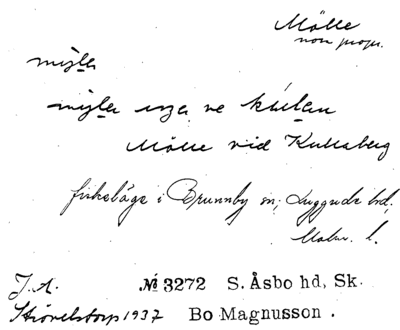 Mölle
non propr.
mı̣ḷa
Mölle vid Kullaberg
fiskeläge i Brunnby sn, Luggude hd,
Malm. l.
J. A. № 3272 S. Åsbo hd, Sk.
Stövelstorp 1937 Bo Magnusson .